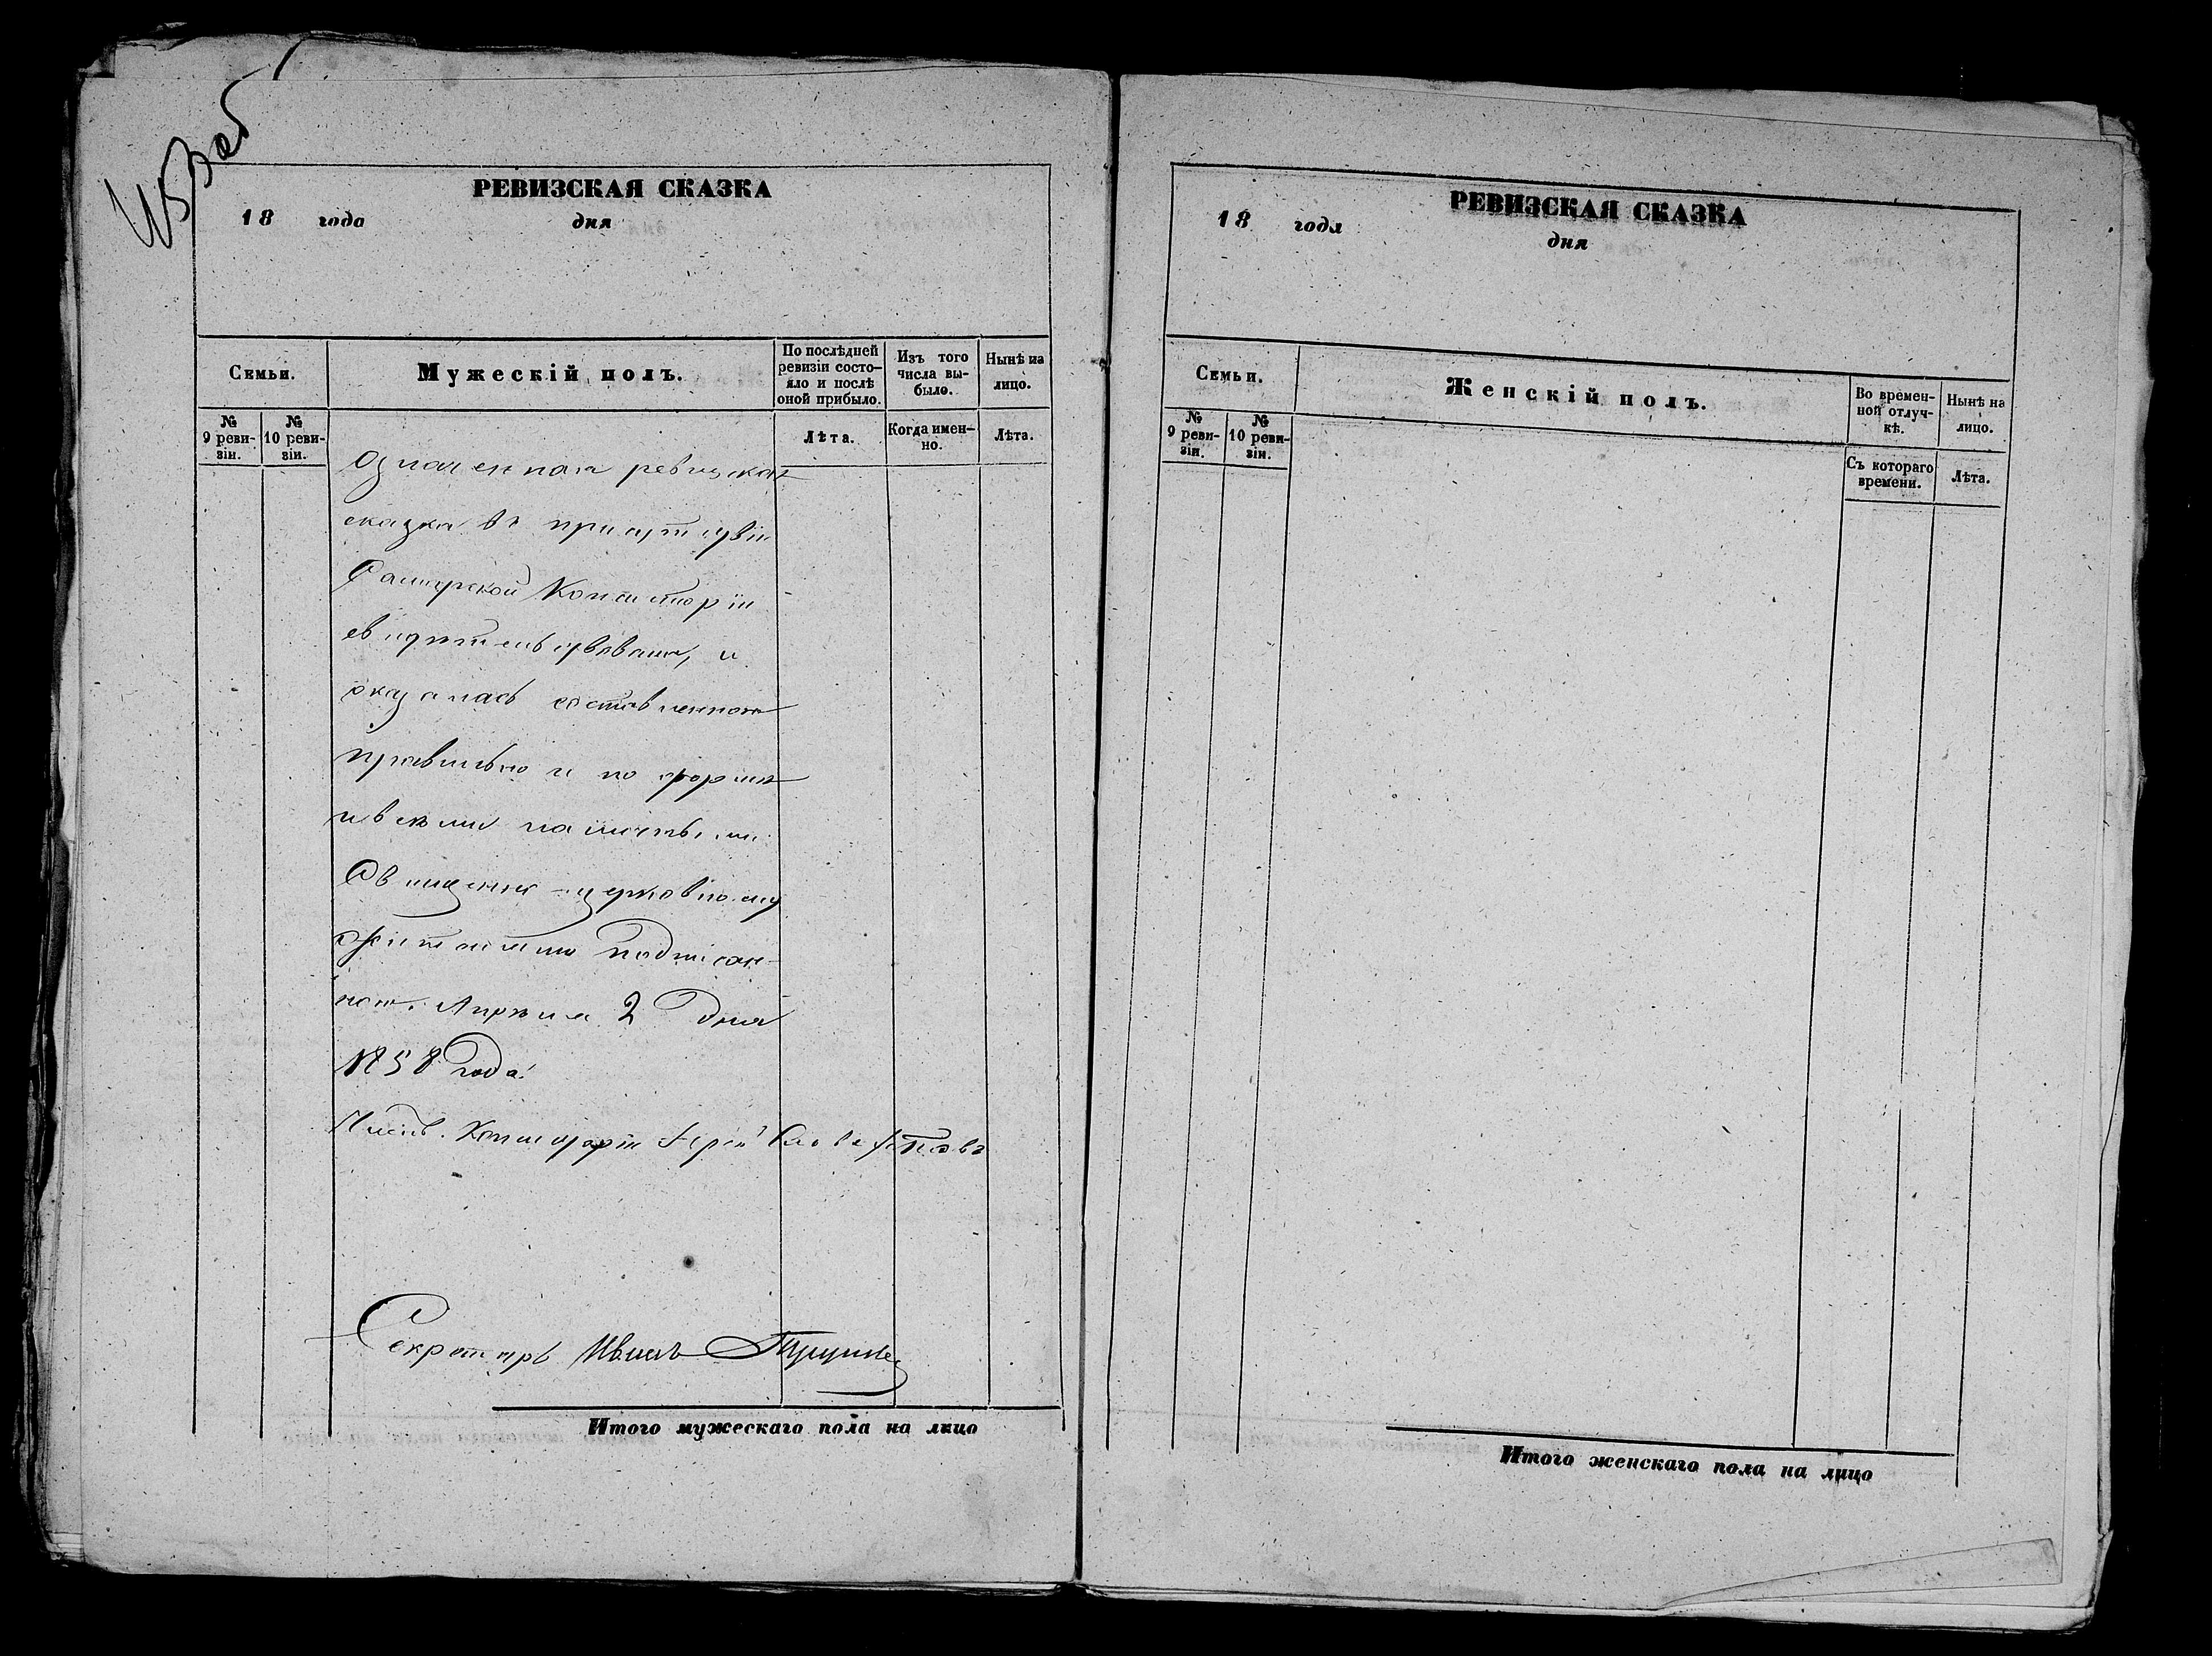 РЕВИЗСКАЯ СКАЗКА
18 года дня
Семьи.
Мужескій полъ.
По послѣдней ревизіи состо-яло и послѣ оной прибыло.
Изъ того числа вы-было.
Нынѣ на лицо.
№ 9 реви-зіи.
№ 10 реви-зіи.
Лѣта.
Когда имен-но.
Лѣта.
Означенная ревизская
сказка въ присутствіи
Самарской Консисторіи
свидѣтельствована, и
оказалась составленною
правильно и по формѣ
и всѣми наличными
Священно-церковному
подписан-
ною. Апрѣля 2 дня
1858 года.
Членъ Консисторіи Іерей
Секретарь Иванъ
Итого мужескаго пола на лицо
РЕВИЗСКАЯ СКАЗКА
18 года дня
Семьи.
Женскій полъ.
Во времен-ной отлуч-кѣ.
Нынѣ на лицо.
№ 9 реви-зіи.
№ 10 реви-зіи.
Съ котораго времени.
Лѣта.
Итого женскаго пола на лицо